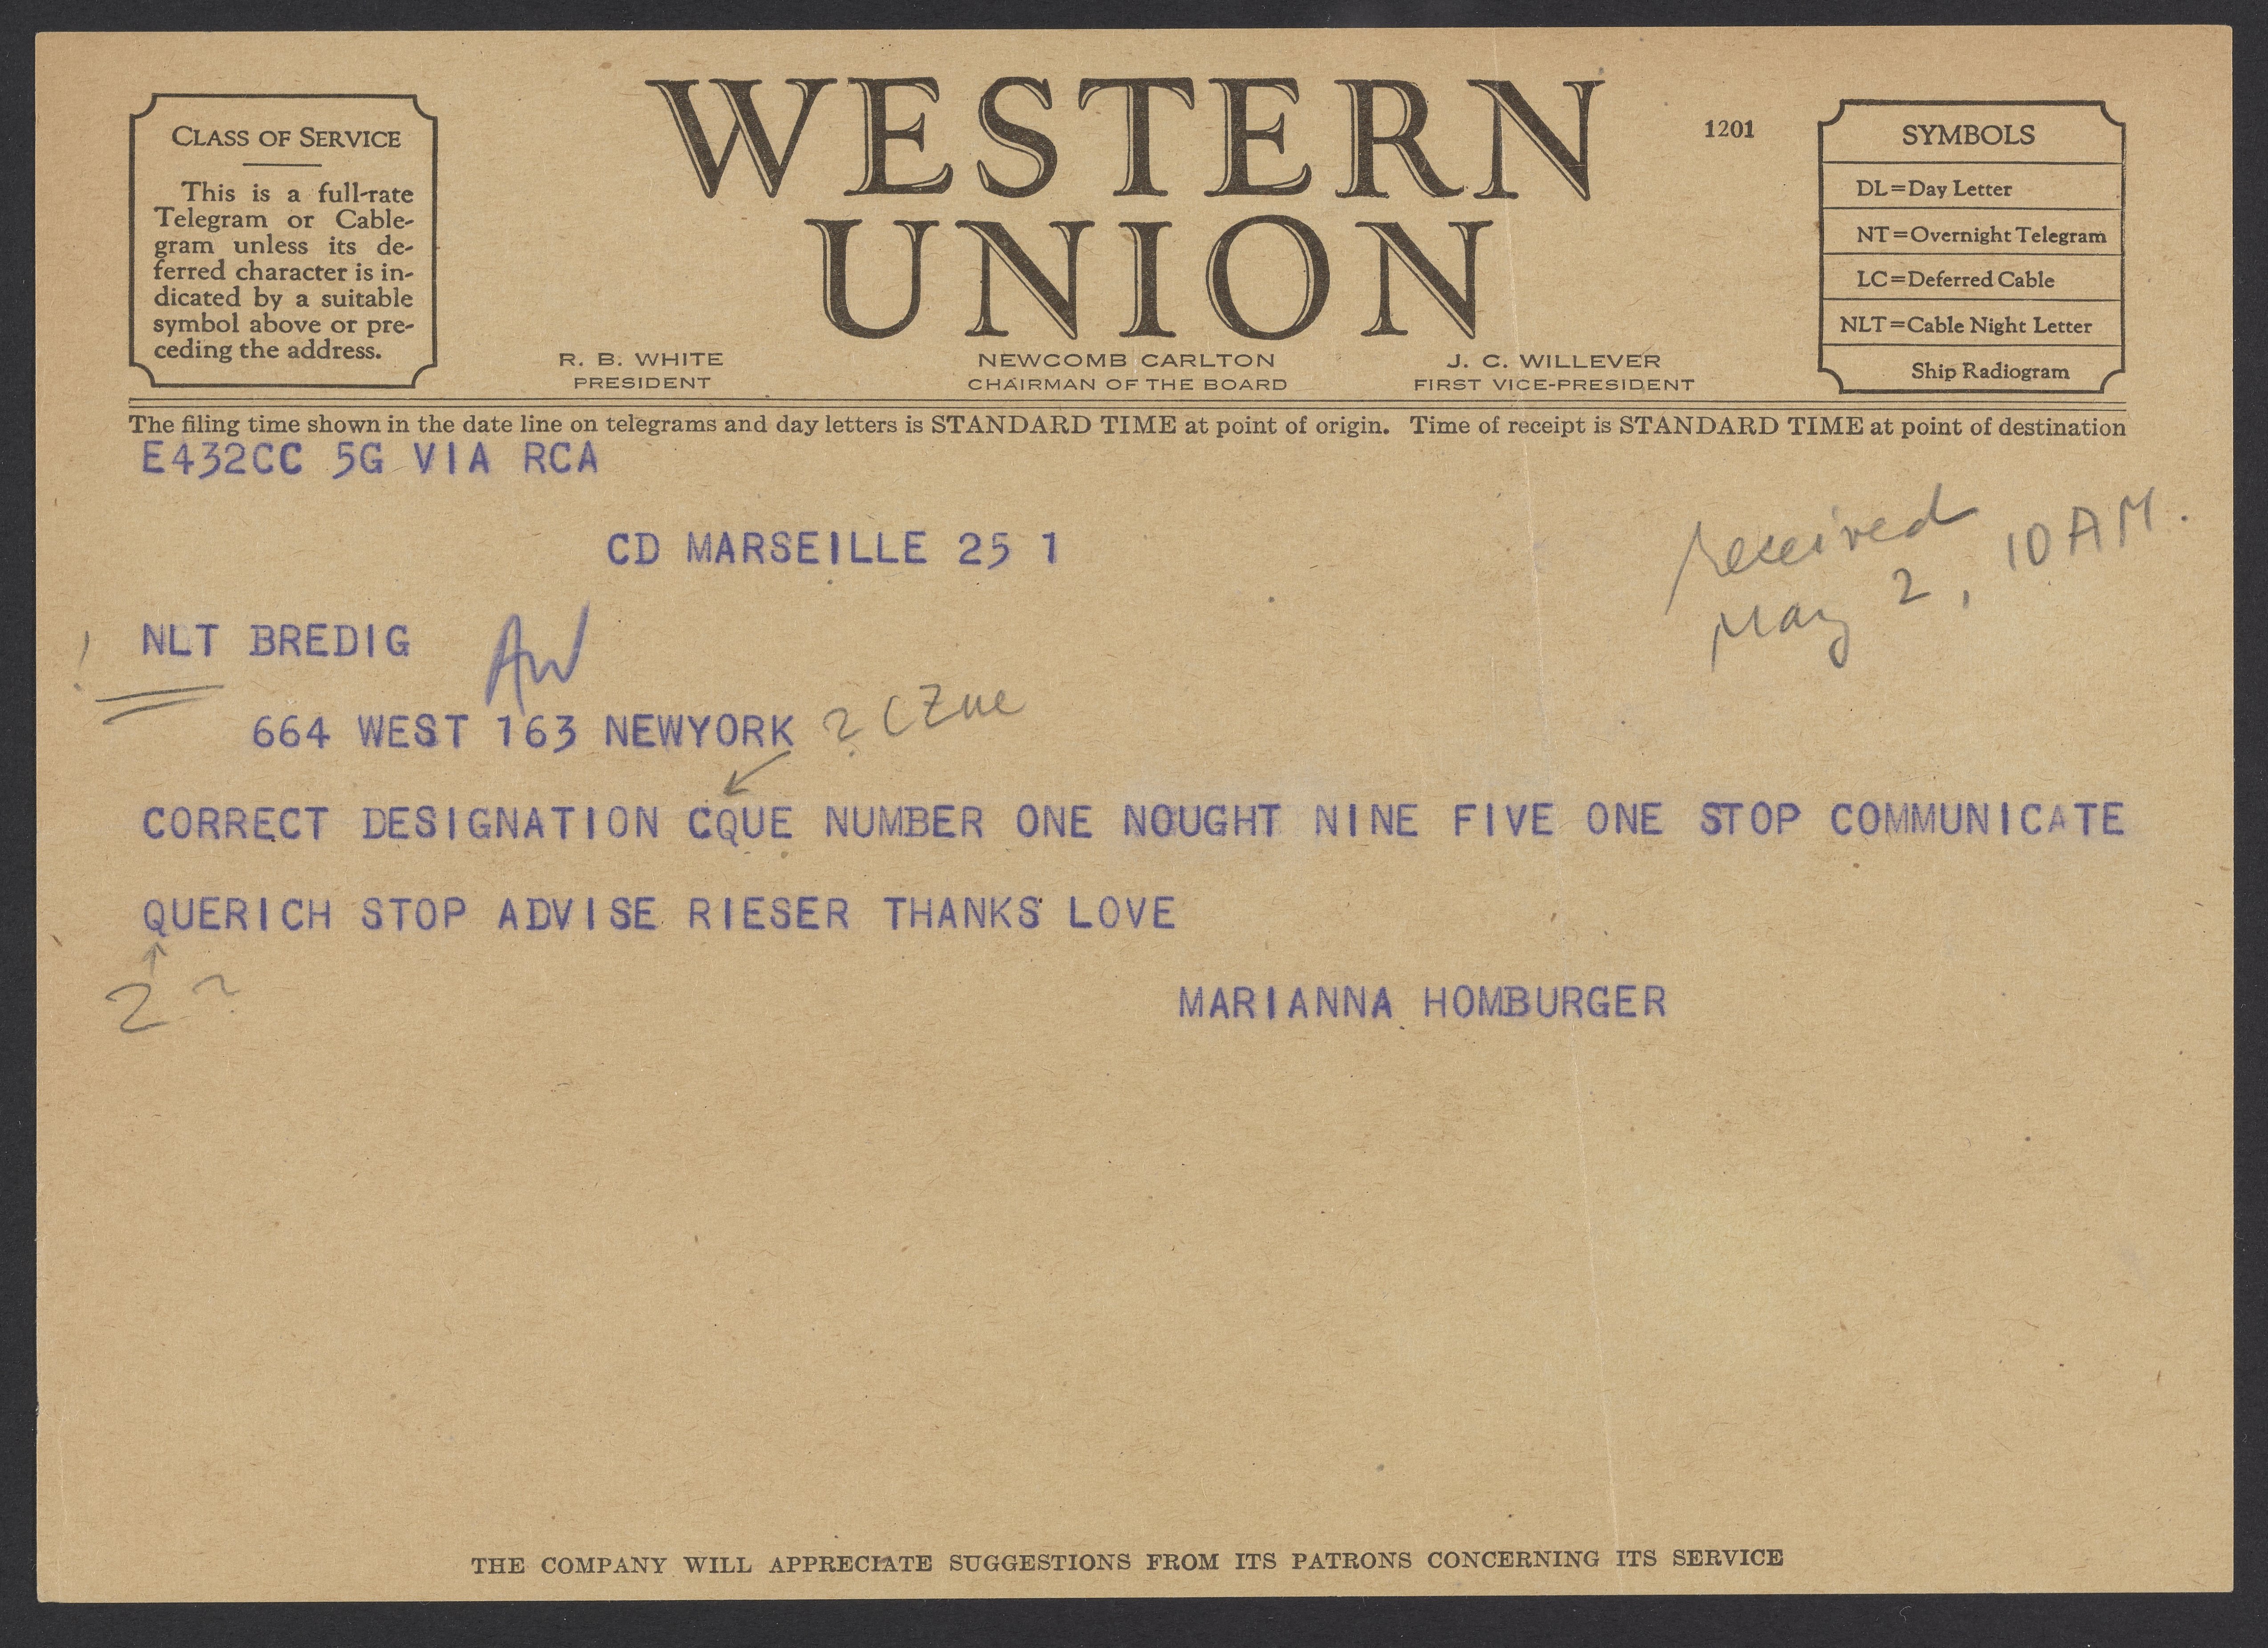 CLASS OF SERVICE
This is a full-rate
Telegram or Cable-
gram unless its de-
ferred character is in-
dicated by a suitable
symbol above or pre-
ceding the address.
WESTERN
UNION
1201
SYMBOLS
DL=Day Letter
NT=Overnight Telegram
LC=Deferred Cable
NLT=Cable Night Letter
Ship Radiogram
R. B. WHITE
PRESIDENT
NEWCOMB CARLTON
CHAIRMAN OF THE BOARD
J. C. WILLEVER
FIRST VICE-PRESIDENT
The filing time shown in the date line on telegrams and day letters is STANDARD TIME at point of origin. Time of receipt is STANDARD TIME at point of destination
E432CC 5G VIA RCA
CD MARSEILLE 25 1
received
May 2, 10 AM.
! NLT BREDIG AW
664 WEST 163 NEWYORK ? CZUE
CORRECT DESIGNATION CQUE NUMBER ONE NOUGHT NINE FIVE ONE STOP COMMUNICATE
QUERICH STOP ADVISE RIESER THANKS LOVE
Z ?
MARIANNA HOMBURGER
THE COMPANY WILL APPRECIATE SUGGESTIONS FROM ITS PATRONS CONCERNING ITS SERVICE